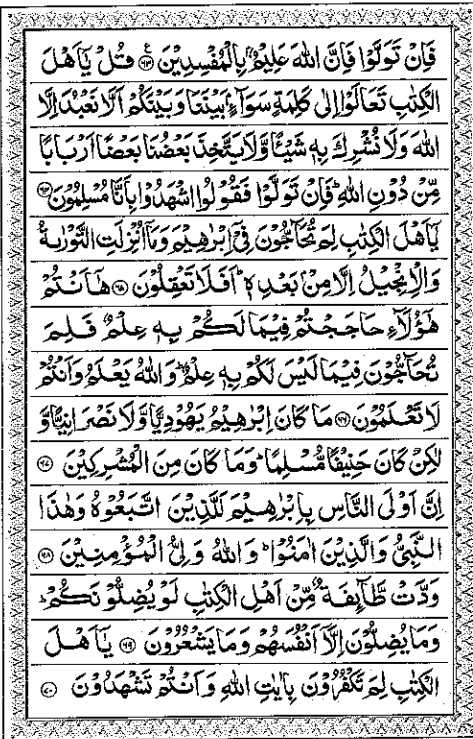 فَاِنْ تَوَلَّوْا فَاِنَّ اللّٰهَ عَلِيْمٌۢ بِالْمُفْسِدِيْنَ ﴿۶۳﴾ ع قُلْ يٰۤاَهْلَ
الْكِتٰبِ تَعَالَوْا اِلٰى كَلِمَةٍ سَوَآءٍۭ بَيْنَنَا وَبَيْنَكُمْ اَلَّا نَعْبُدَ اِلَّا
اللّٰهَ وَلَا نُشْرِكَ بِهٖ شَيْـًٔا وَّلَا يَتَّخِذَ بَعْضُنَا بَعْضًا اَرْبَابًا
مِّنْ دُوْنِ اللّٰهِ ؕ فَاِنْ تَوَلَّوْا فَقُوْلُوا اشْهَدُوْا بِاَنَّا مُسْلِمُوْنَ ﴿۶۴﴾
يٰۤاَهْلَ الْكِتٰبِ لِمَ تُحَآجُّوْنَ فِيْۤ اِبْرٰهِيْمَ وَمَاۤ اُنْزِلَتِ التَّوْرٰىةُ
وَالْاِنْجِيْلُ اِلَّا مِنْۢ بَعْدِهٖ ؕ اَفَلَا تَعْقِلُوْنَ ﴿۶۵﴾ هٰۤاَنْتُمْ
هٰۤؤُلَآءِ حَاجَجْتُمْ فِيْمَا لَكُمْ بِهٖ عِلْمٌ فَلِمَ
تُحَآجُّوْنَ فِيْمَا لَيْسَ لَكُمْ بِهٖ عِلْمٌ ؕ وَاللّٰهُ يَعْلَمُ وَاَنْتُمْ
لَا تَعْلَمُوْنَ ﴿۶۶﴾ مَا كَانَ اِبْرٰهِيْمُ يَهُوْدِيًّا وَّلَا نَصْرَانِيًّا وَّ
لٰكِنْ كَانَ حَنِيْفًا مُّسْلِمًا ؕ وَمَا كَانَ مِنَ الْمُشْرِكِيْنَ ﴿۶۷﴾
اِنَّ اَوْلَى النَّاسِ بِاِبْرٰهِيْمَ لَلَّذِيْنَ اتَّبَعُوْهُ وَهٰذَا
النَّبِيُّ وَالَّذِيْنَ اٰمَنُوْا ؕ وَاللّٰهُ وَلِيُّ الْمُؤْمِنِيْنَ ﴿۶۸﴾
وَدَّتْ طَّآئِفَةٌ مِّنْ اَهْلِ الْكِتٰبِ لَوْ يُضِلُّوْنَكُمْ ؕ
وَمَا يُضِلُّوْنَ اِلَّاۤ اَنْفُسَهُمْ وَمَا يَشْعُرُوْنَ ﴿۶۹﴾ يٰۤاَهْلَ
الْكِتٰبِ لِمَ تَكْفُرُوْنَ بِاٰيٰتِ اللّٰهِ وَاَنْتُمْ تَشْهَدُوْنَ ﴿۷۰﴾